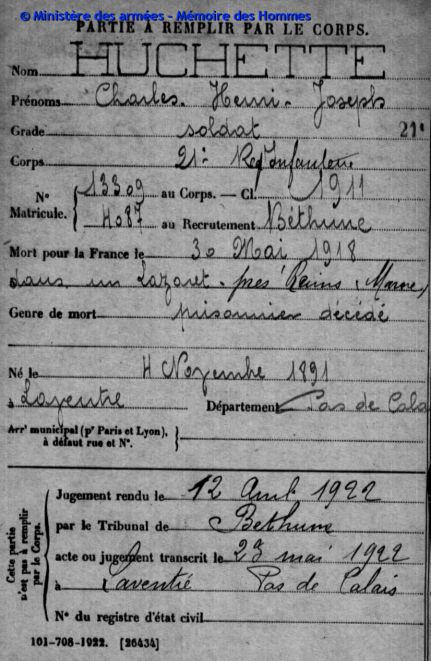 © Ministère des armées - Mémoire des Hommes
PARTIE À REMPLIR PAR LE CORPS.
Nom HUCHETTE
Prénoms Charles. Henri. Joseph
Grade soldat 21e
Corps 21e Reg Infanterie
N° Matricule. { 13309 au Corps. — Cl. 1911
4087 au Recrutement Béthune
Mort pour la France le 30 Mai 1918
à dans un Lazaret. près Reims (Marne)
Genre de mort prisonnier décédé
Né le 4 Novembre 1891
à Laventie Département Pas de Cala
Arrt municipal (pr Paris et Lyon),
à défaut rue et N°.
Cette partie n'est pas à remplir par le Corps.
Jugement rendu le 12 Avril 1922
par le Tribunal de Béthune
acte ou jugement transcrit le 23 mai 1922
à Laventie Pas de Calais
N° du registre d'état civil
101-708-1922. [26434]